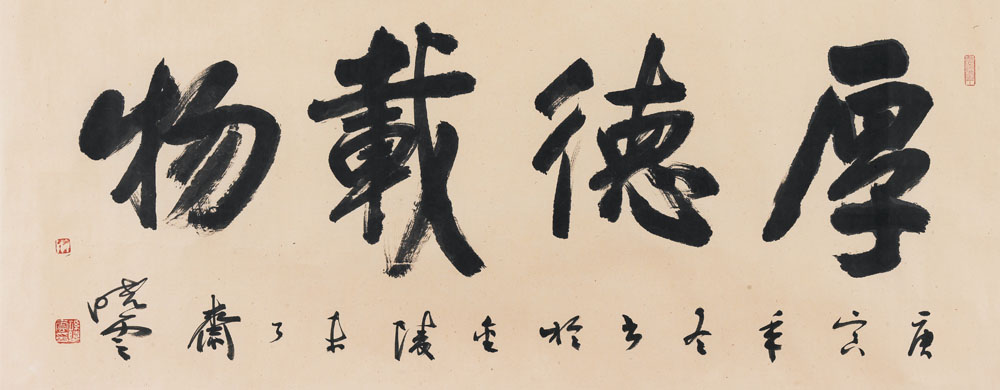 厚德載物
庚寅年冬书於金陵未了齋
晓雲